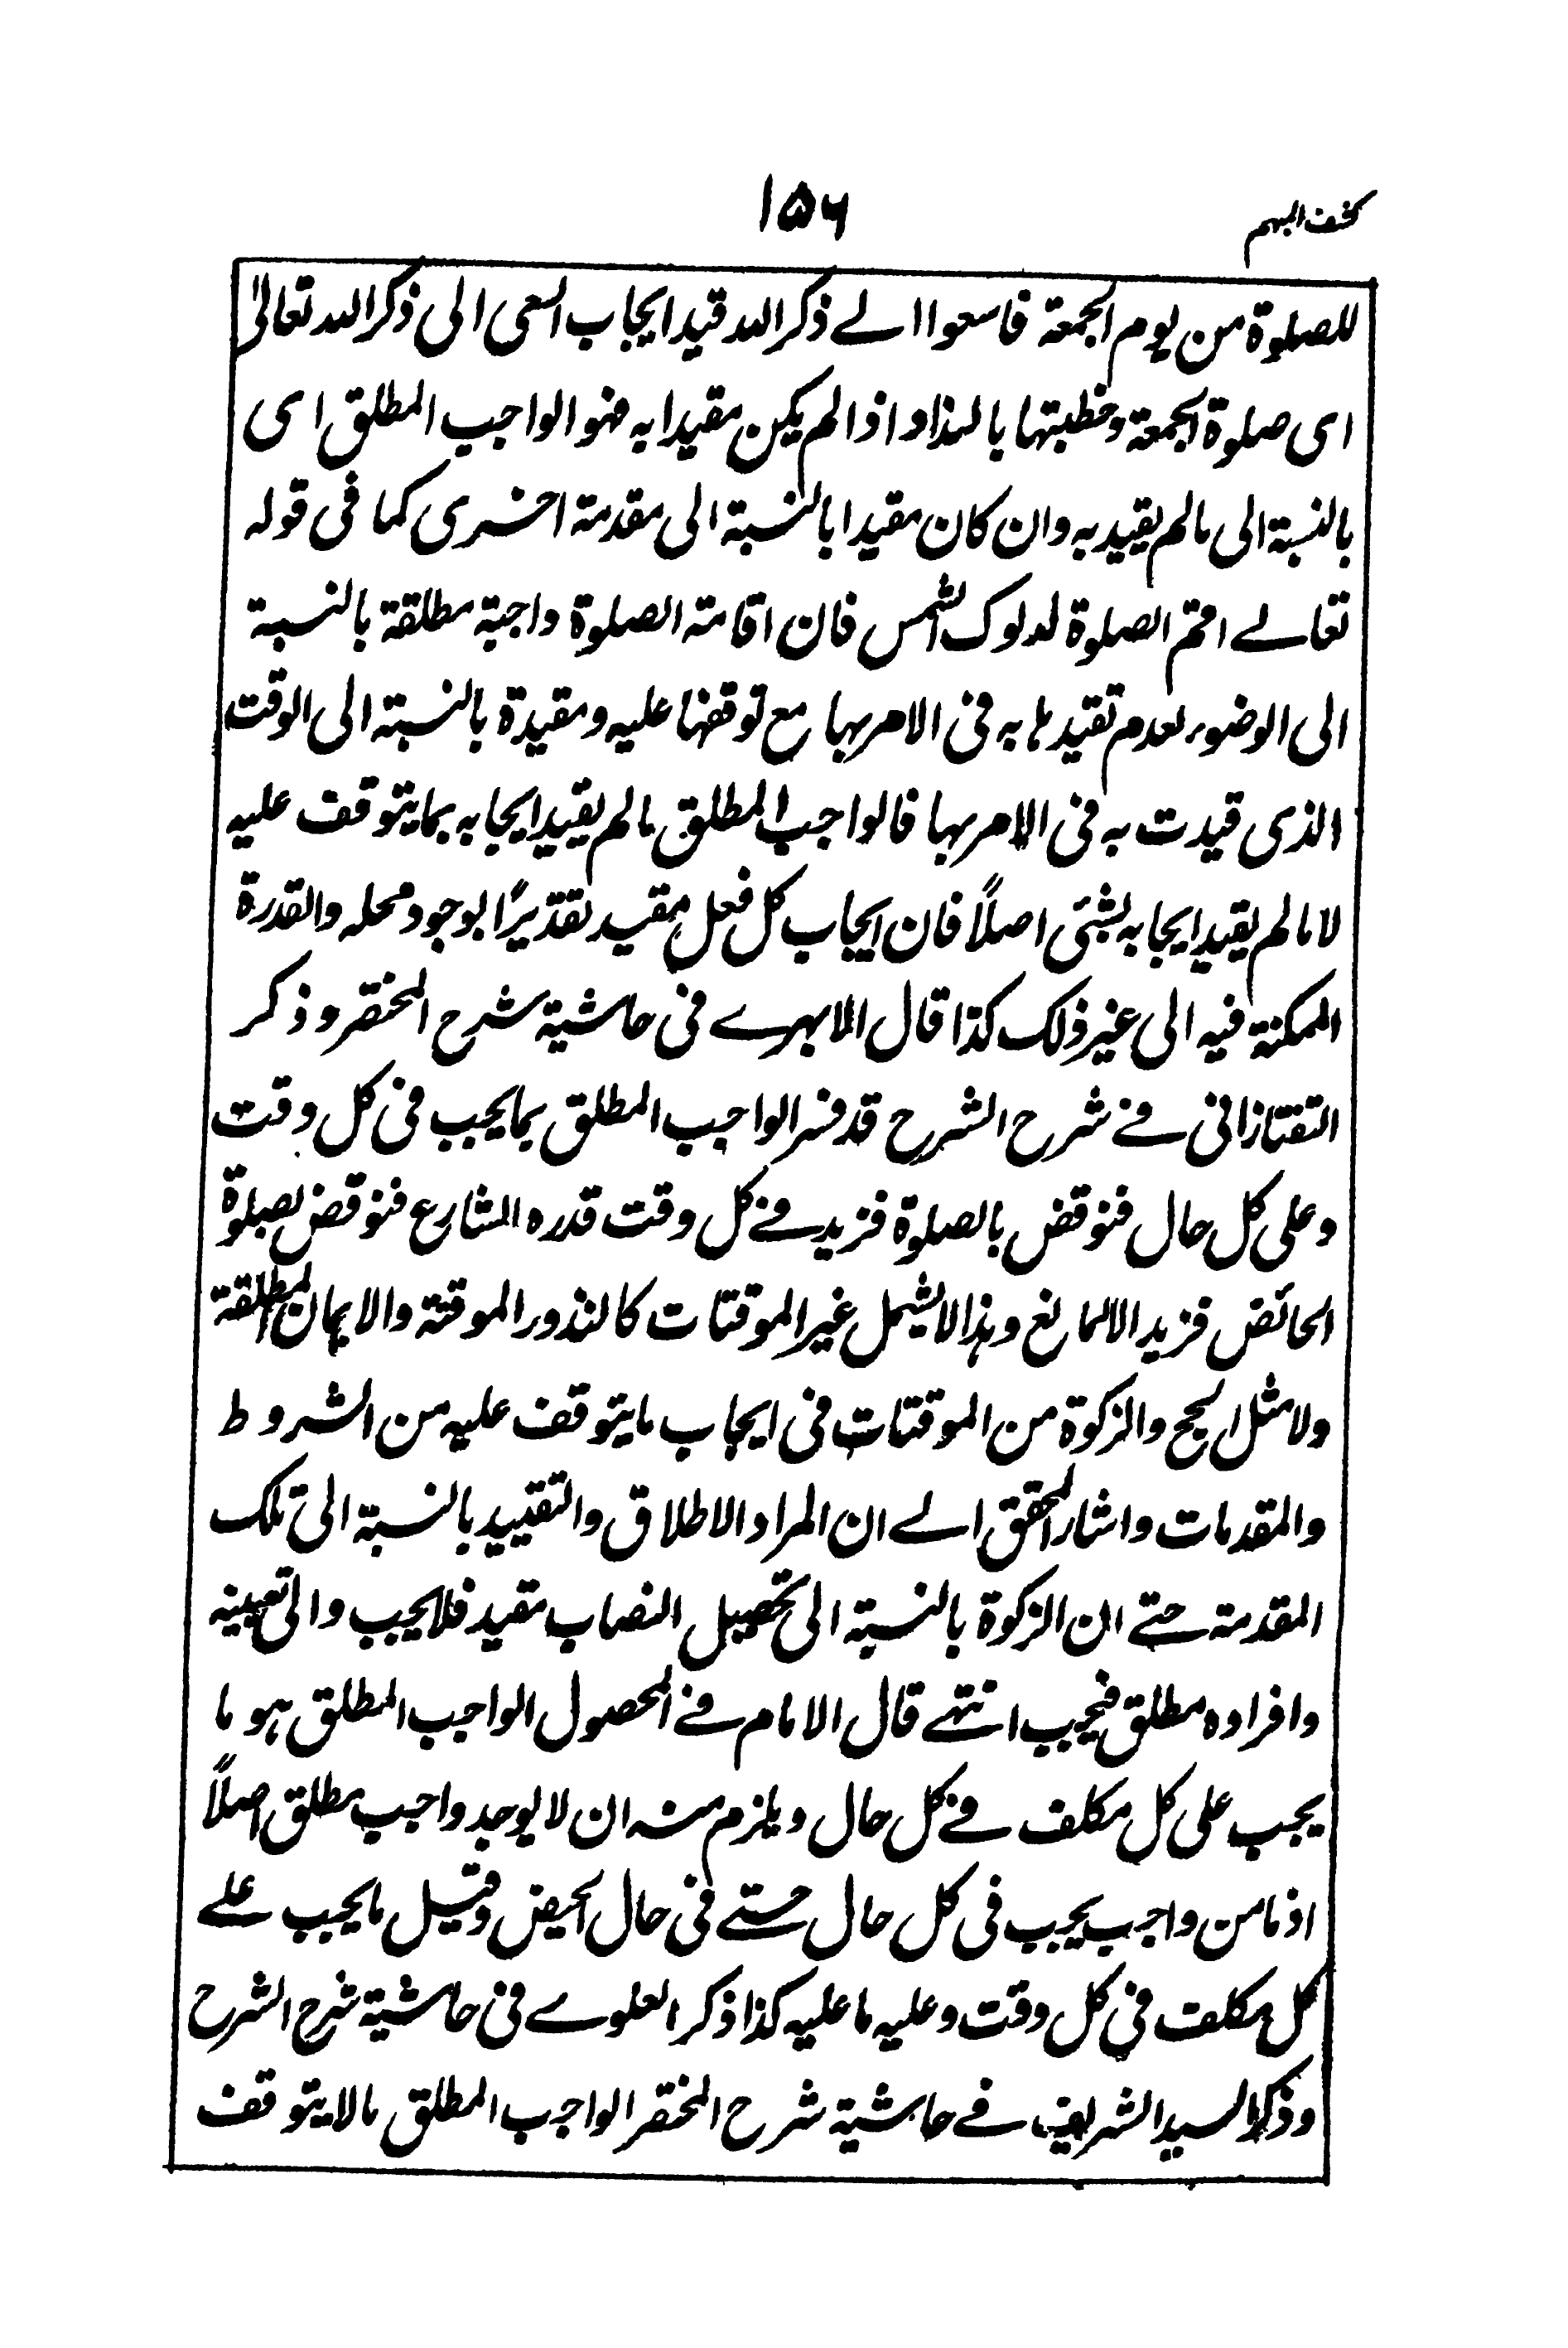 كشف المبهم
۱۵۶
للصلوة من يوم الجمعة فاسعوا الے ذكر الله قيد ايجاب السعى الى ذكر الله تعالى
اى صلوة الجمعة وخطبتها بالنداء واذا لم يكن مقيدا به فهو الواجب المطلق اى
بالنسبة الى ما لم يقيد به وان كان مقيدا بالنسبة الى مقدمة اخرى كما فى قوله
تعالے اقم الصلوة لدلوك الشمس فان اقامة الصلوة واجبة مطلقة بالنسبة
الى الوضوء لعدم تقيدها به فى الامر بها مع توقفها عليه ومقيدة بالنسبة الى الوقت
الذى قيدت به فى الامر بها فالواجب المطلق ما لم يقيد ايجابه بما يتوقف عليه
لا ما لم يقيد ايجابه بشئ اصلاً فان ايجاب كل فعل مقيد تقديرًا بوجود محله والقدرة
الممكنة فيه الى غير ذلك كذا قال الابهرے فى حاشية شرح المختصر وذكر
التفتازانى فے شرح الشرح قد فسر الواجب المطلق بما يجب فى كل وقت
وعلى كل حال فنوقض بالصلوة فزيد فے كل وقت قدره الشارع فنوقض بصلوة
الحائض فزيد الا لمانع وهذا لا يشمل غير الموقتات كالنذور الموقتة والايمان المطلقة
ولا مثل الحج والزكوة من الموقتات فى ايجاب ما يتوقف عليه من الشروط
والمقدمات واشار المحقق الے ان المراد الاطلاق والتقييد بالنسبة الى تلك
المقدمة حتے ان الزكوة بالنسبة الى تحصيل النصاب مقيد فلا يجب والى تعيينه
وافراده مطلق فيجب انتهے قال الامام فے المحصول الواجب المطلق هو ما
يجب على كل مكلف فے كل حال ويلزم منه ان لا يوجد واجب مطلق اصلاً
اذ ما من واجب يجب فى كل حال حتے فى حال الحيض وقيل ما يجب علے
كل مكلف فى كل وقت وعليه ما عليه كذا ذكر العلوے فى حاشية شرح الشرح
وذكر السيد الشريف فے حاشية شرح المختصر الواجب المطلق ما لا يتوقف